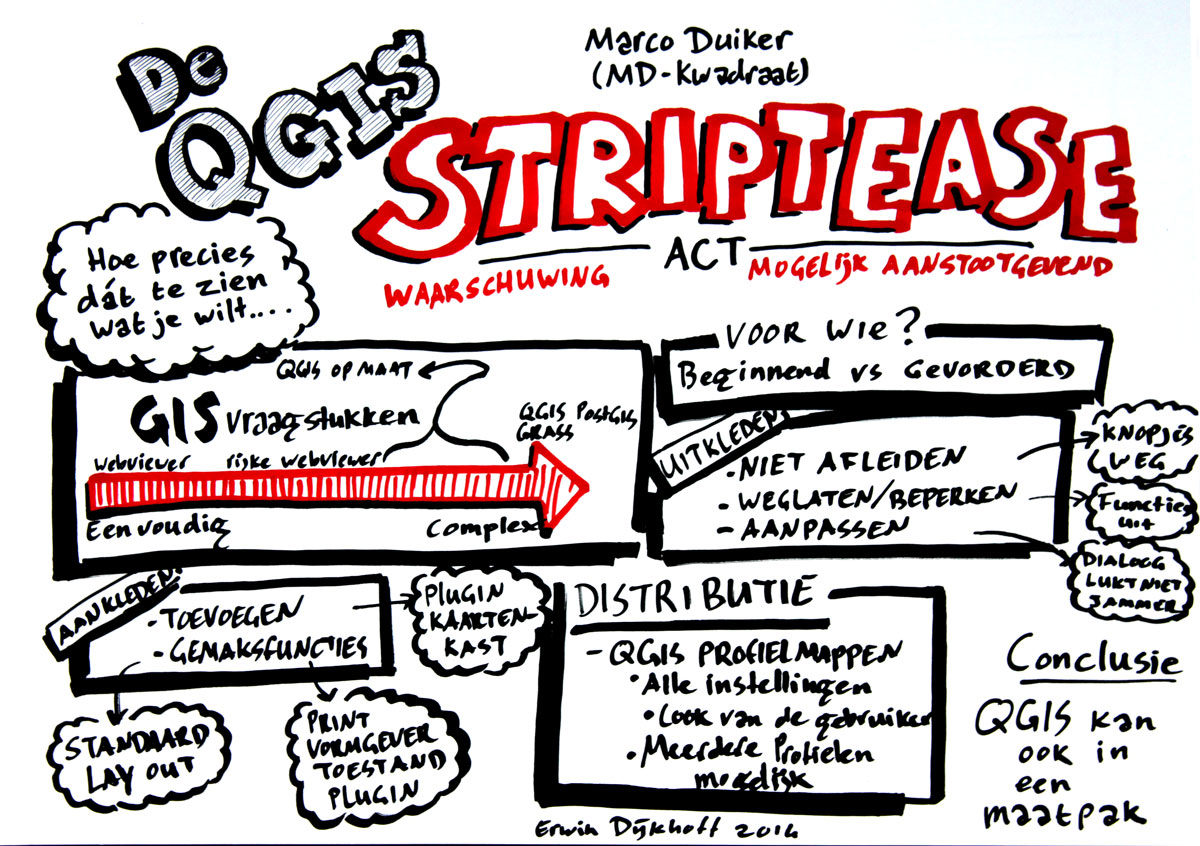 De
QGIS
Marco Duiker
(MD-Kwadraat)
STRIPTEASE
ACT
WAARSCHUWING
MOGELIJK AANSTOOTGEVEND
Hoe precies
dát te zien
wat je wilt....
QGIS OP MAAT
GIS vraagstukken
QGIS PostGIS
GRASS
webviewer rijke webviewer
Eenvoudig
Complex
VOOR WIE?
Beginnend vs GEVORDERD
UITKLEDEN
- NIET AFLEIDEN
- WEGLATEN/BEPERKEN
- AANPASSEN
KNOPJES
WEG
Functies
uit
DIALOOG
LUKT NIET
JAMMER
AANKLEDEN
- TOEVOEGEN
- GEMAKSFUNCTIES
PLUGIN
KAARTEN-
KAST
STANDAARD
LAY OUT
PRINT
VORMGEVER
TOESTAND
PLUGIN
DISTRIBUTIE
- QGIS PROFIELMAPPEN
• Alle instellingen
• Look van de gebruiker
• Meerdere Profielen
mogelijk
Conclusie
QGIS kan
ook in
een
maatpak
Erwin Dijkhoff 2014